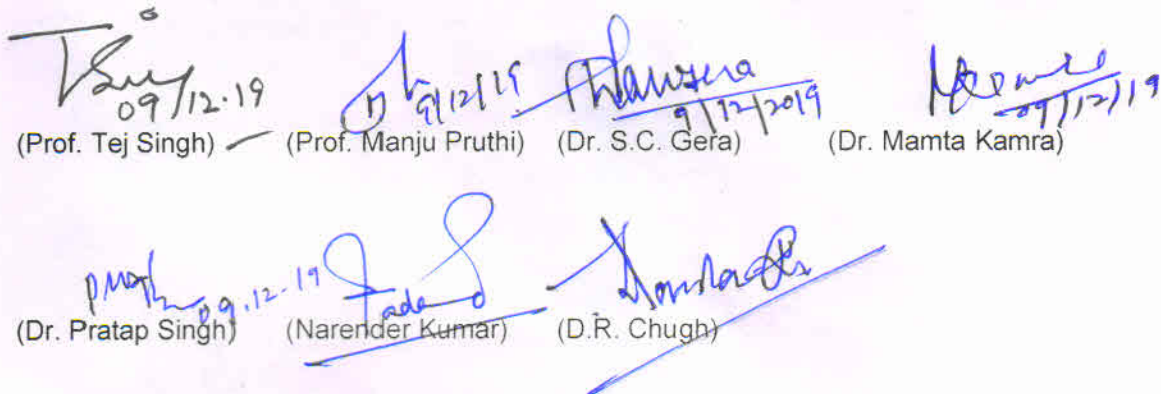 09/12.19 9/12/19 9/12/2019 09/12/19
(Prof. Tej Singh) (Prof. Manju Pruthi) (Dr. S.C. Gera) (Dr. Mamta Kamra)
09.12.19
(Dr. Pratap Singh) (Narender Kumar) (D.R. Chugh)